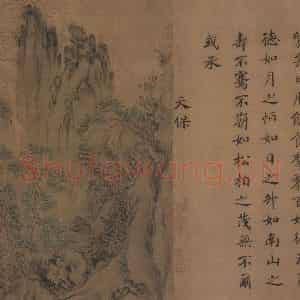 德如月之恒如日之升如南山之
壽不騫不崩如松柏之茂無不爾
或承
天保
Shufawang.CN